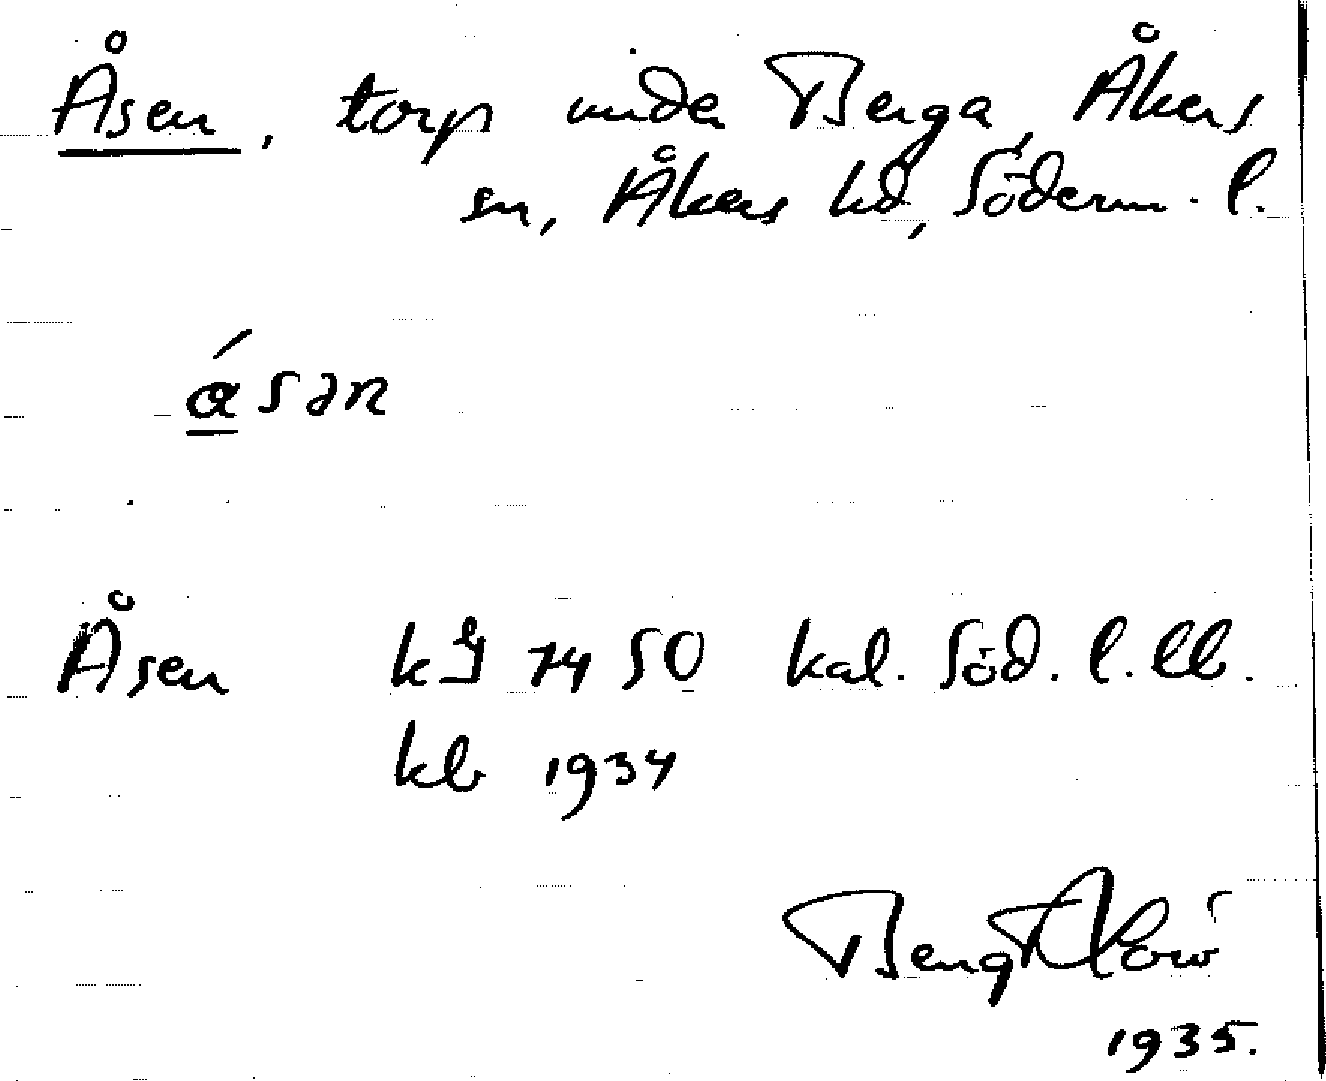 Åsen, torp under Berga, Åkers
sn, Åkers hd, Söderm. l.
ásən
Åsen k 74 50 kal. Söd. l. lb.
kb 1934
Bengt
1935.